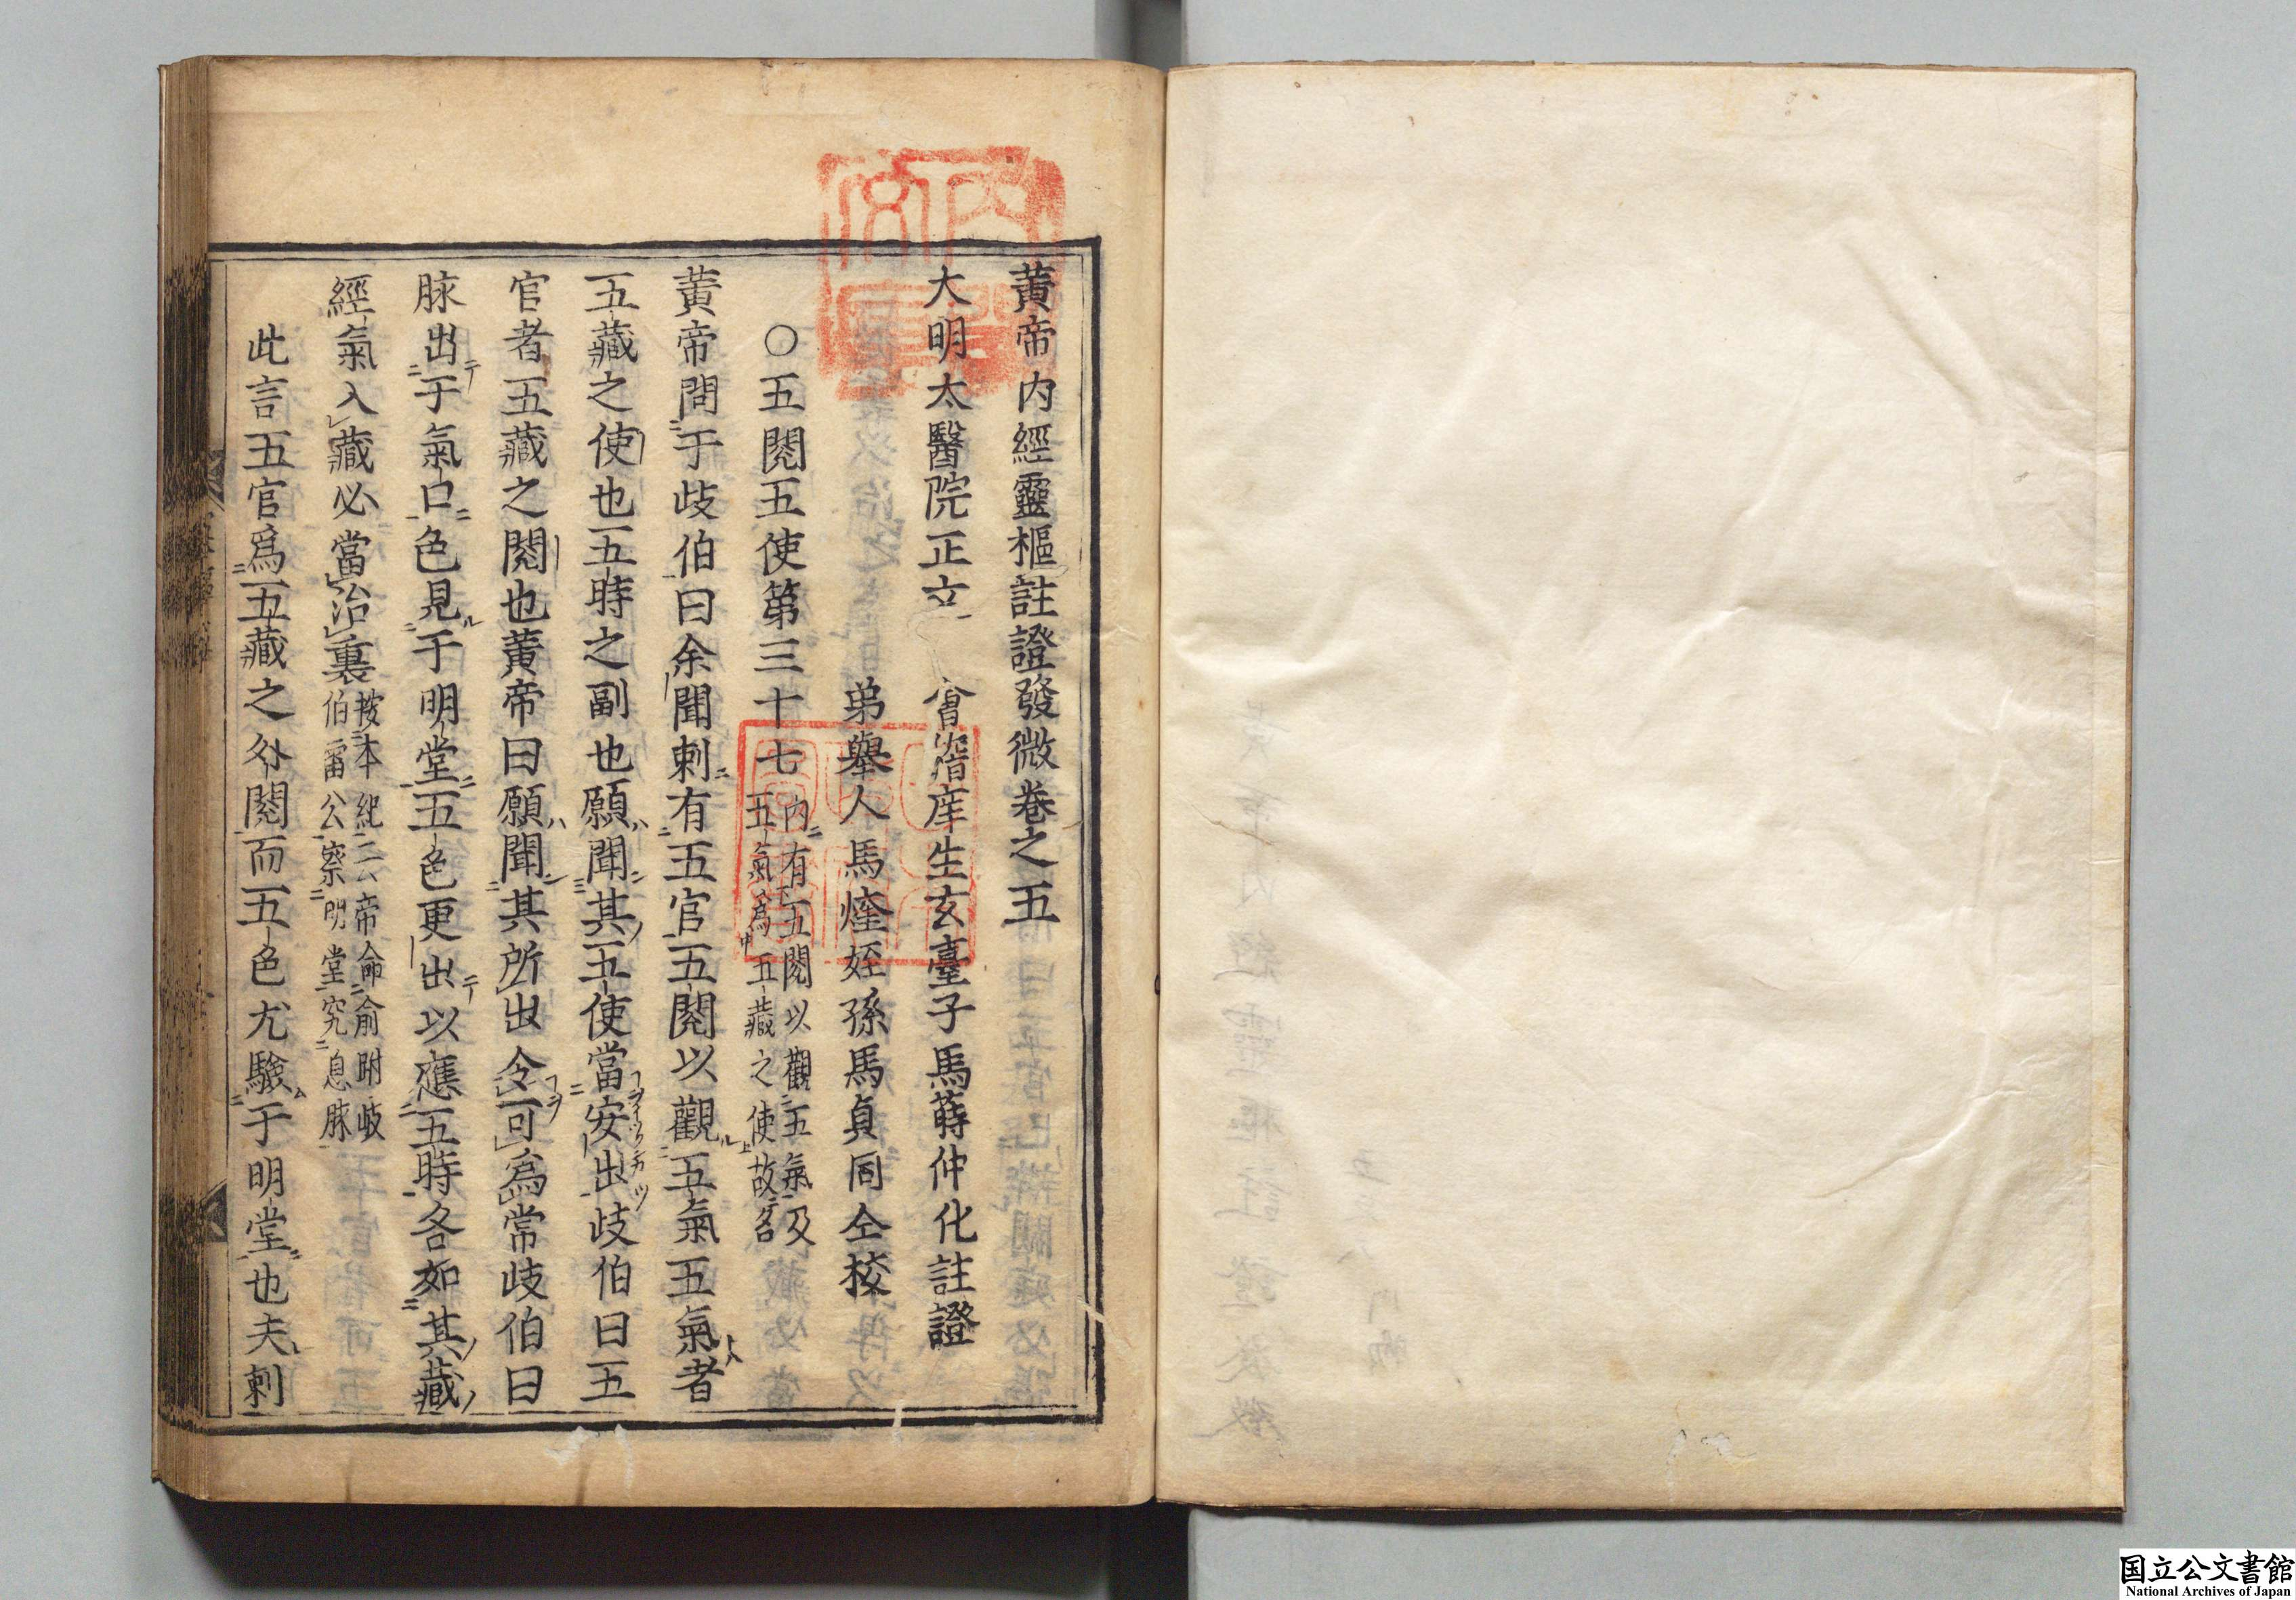 黃帝內經靈樞註證發微卷之五
大明太醫院正文 會稽庠生玄臺子馬蒔仲化註證
弟舉人馬煃姪孫馬貞同仝校
○五閱五使第三十七
內有五閱以觀五氣及
五氣爲五藏之使故名
黃帝問于歧伯曰余聞刺有五官五閱以觀五氣五氣者
五藏之使也五時之副也願聞其五使當安出歧伯曰五
官者五藏之閱也黃帝曰願聞其所出令可爲常歧伯曰
脉出于氣口色見于明堂五色更出以應五時各如其藏
經氣入藏必當治裏
按本紀云帝命俞跗歧
伯雷公察明堂究息脉
此言五官爲五藏之外閱而五色尤驗于明堂也夫刺
国立公文書館
National Archives of Japan